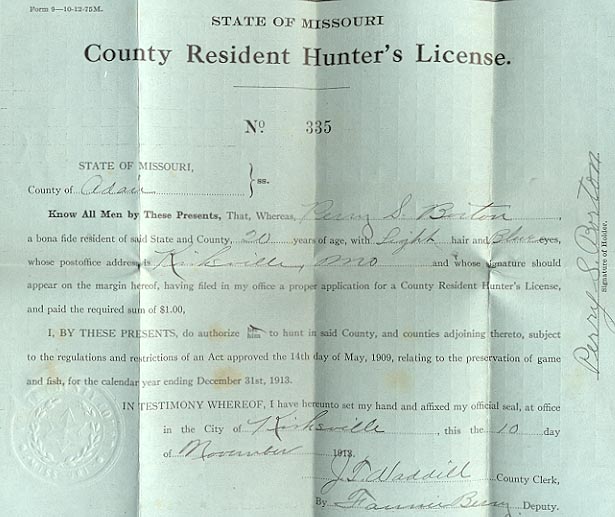 Form 9—10-12-75M.
STATE OF MISSOURI
County Resident Hunter's License.
No. 335
STATE OF MISSOURI,
County of Adair } ss.
Know All Men by These Presents, That, Whereas, Perry S. Borton,
a bona fide resident of said State and County, 20 years of age, with Light hair and Blue eyes,
whose postoffice address is Kirksville, Mo and whose signature should
appear on the margin hereof, having filed in my office a proper application for a County Resident Hunter's License,
and paid the required sum of $1.00,
I, BY THESE PRESENTS, do authorize him to hunt in said County, and counties adjoining thereto, subject
to the regulations and restrictions of an Act approved the 14th day of May, 1909, relating to the preservation of game
and fish, for the calendar year ending December 31st, 1913.
IN TESTIMONY WHEREOF, I have hereunto set my hand and affixed my official seal, at office
in the City of Kirksville, this the 10 day
of November 1913.
J.T. Waddill County Clerk,
By Fannie Deputy.
Perry S. Borton
Signature of Holder.